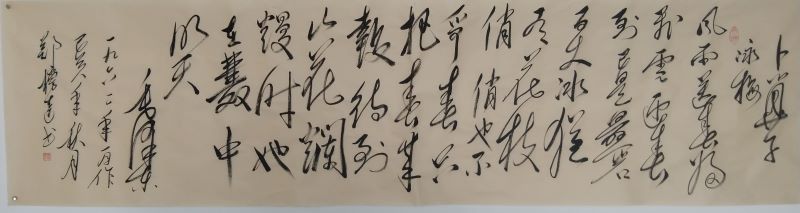 卜算子
咏梅
风雨送春归
飞雪迎春
到已是悬
百丈冰犹
有花枝
俏 俏也不
争春只
把春来
报待到
山花烂
熳时她
在丛中
笑
毛泽东
一九六二年
年秋月
郑
书